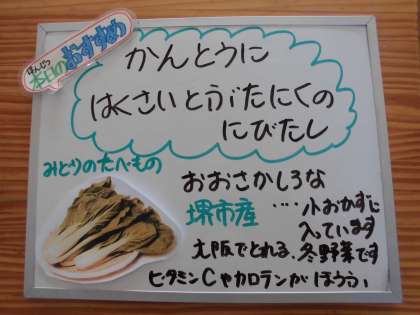 ほんじつ
本日のおすすめ
かんとうに
はくさいとぶたにくの
にびたし
みどりのたべもの
おおさかしろな
堺市産
‥‥小おかずに
入っています
大阪でとれる、冬野菜です
ビタミンCやカロテンがほうふ,